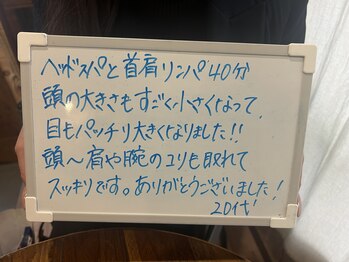 ヘッドスパと首肩リンパ40分
頭の大きさもすごく小さくなって
目もパッチリ大きくなりました!!
頭〜肩や腕のコリも取れて
スッキリです。ありがとうございました!
20代